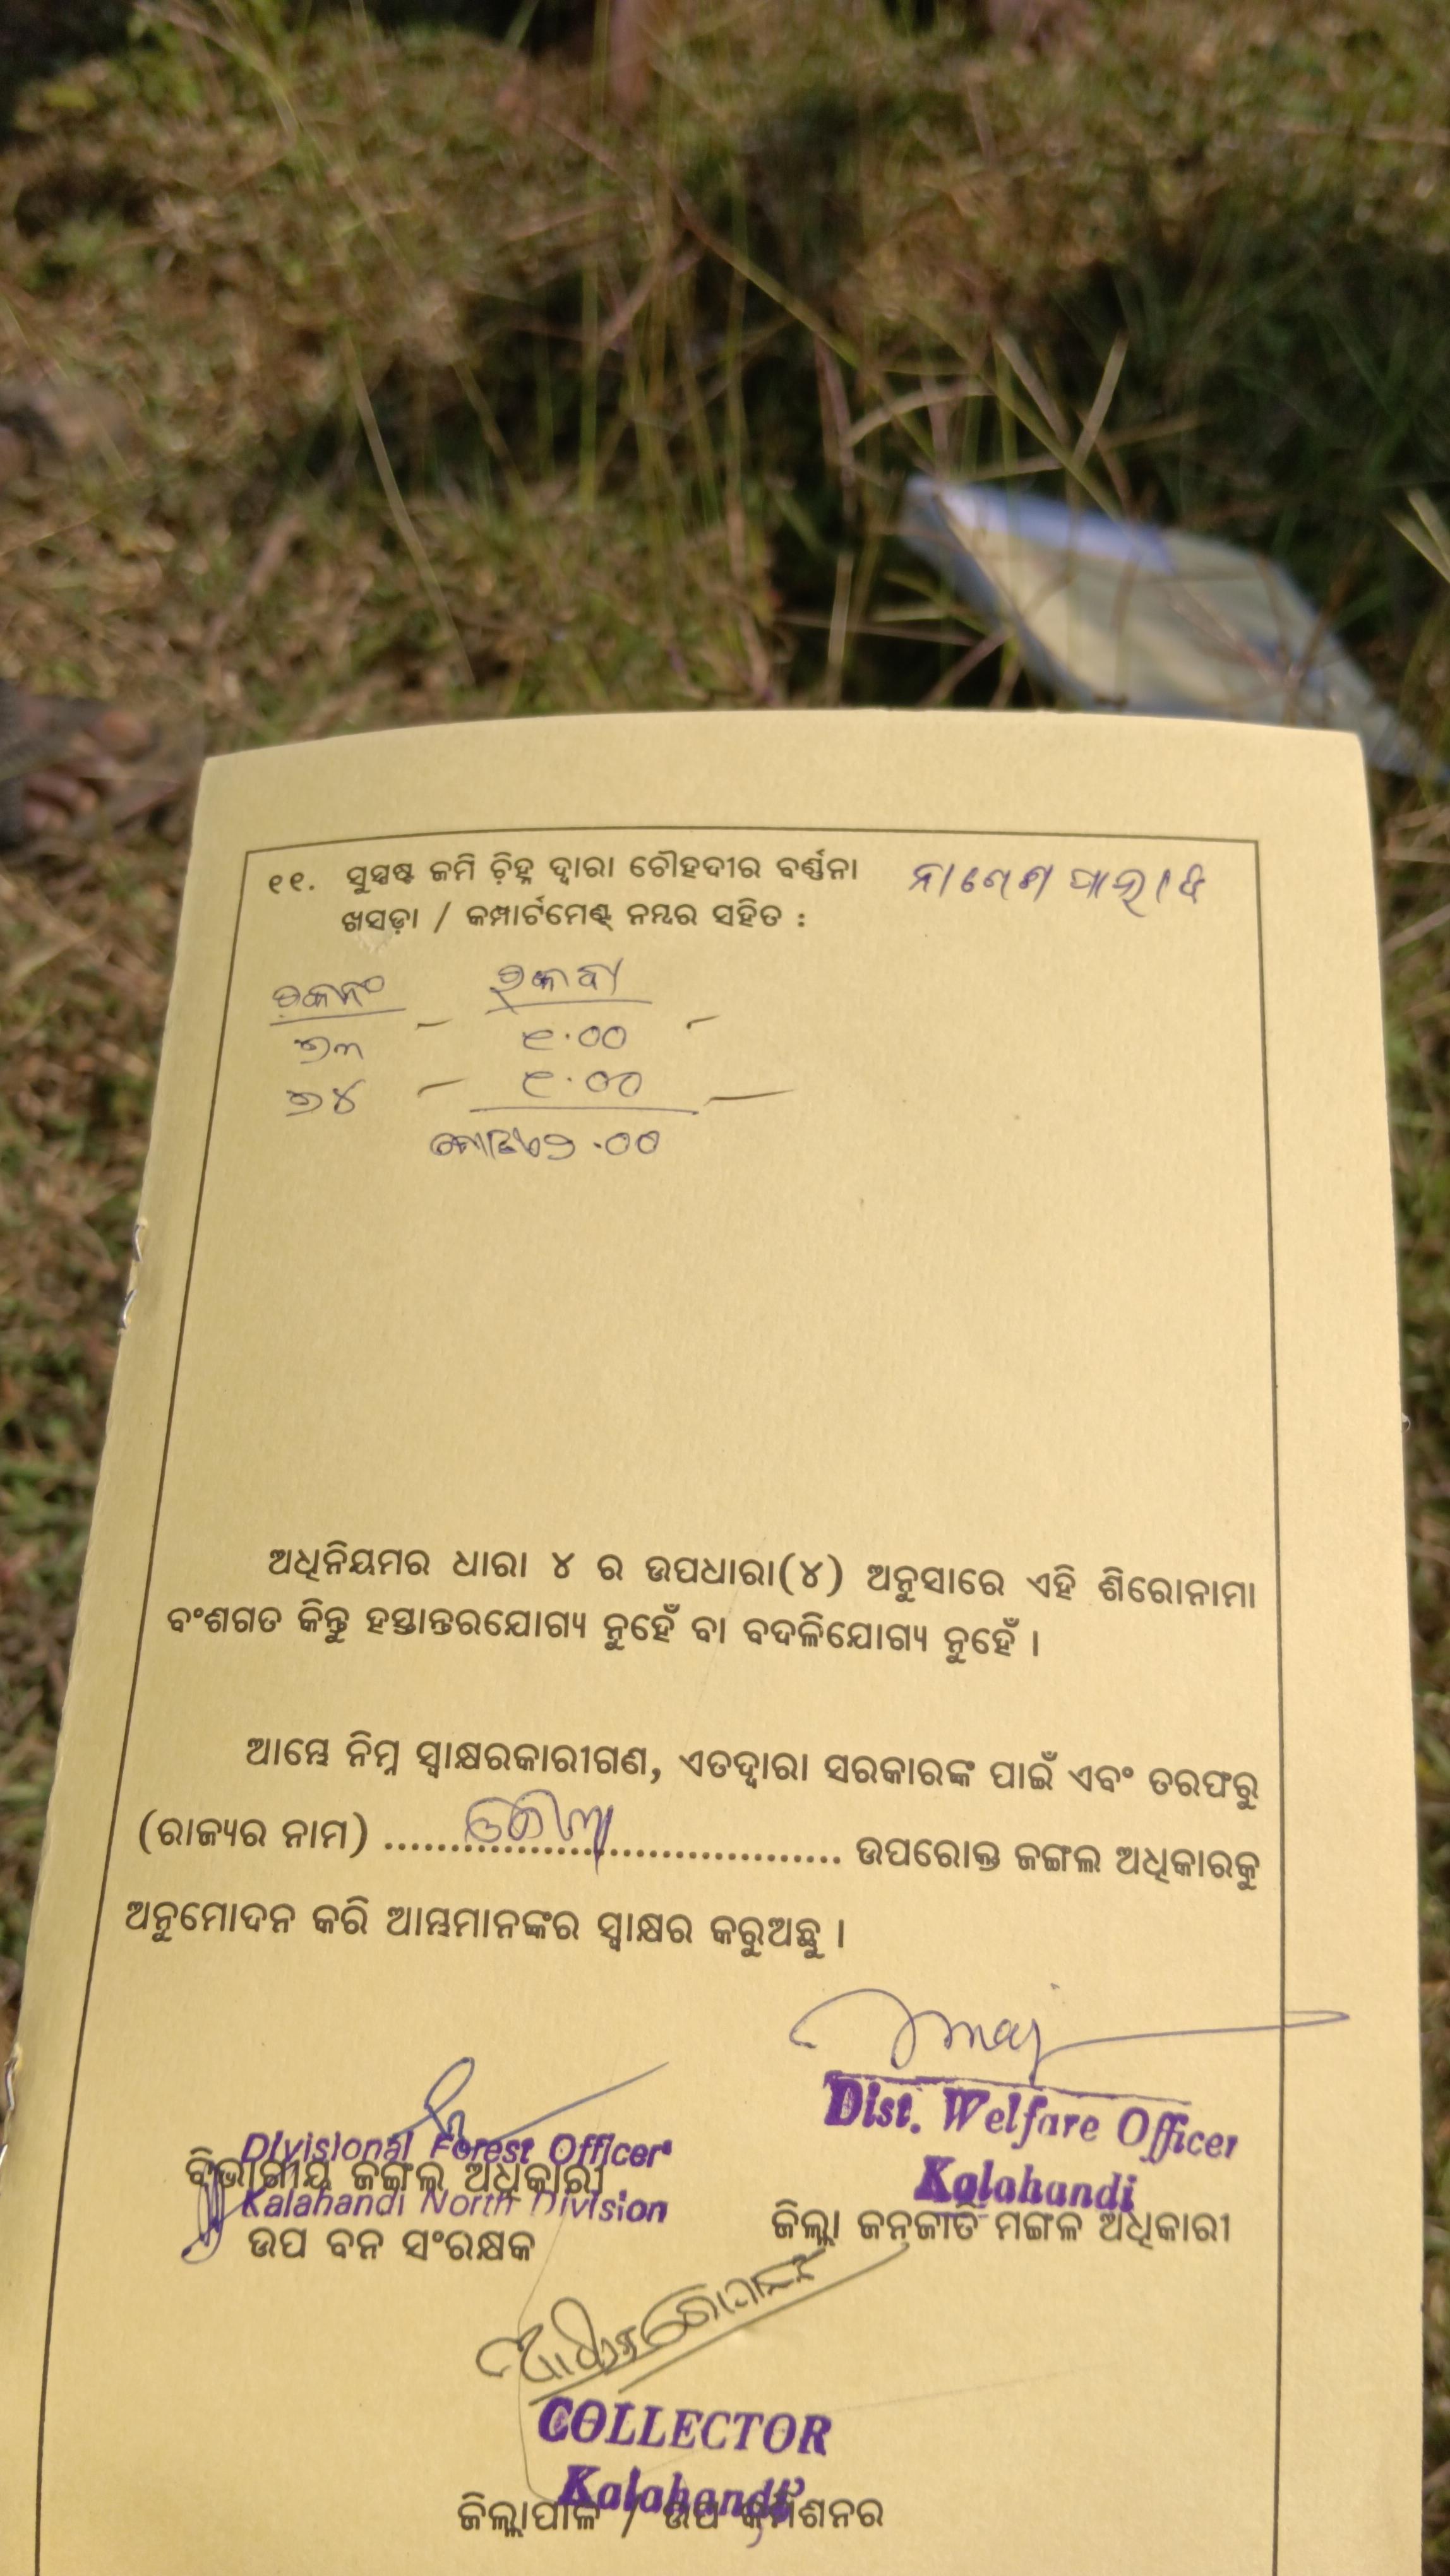 ୧୧. ସୁସ୍ପଷ୍ଟ ଜମି ଚ଼ିହ୍ନ ଦ୍ୱାରା ଚୌହଦୀର ବର୍ଣ୍ଣନା
ଖସଡ଼ା / କମ୍ପାର୍ଟମେଣ୍ଟ୍ ନମ୍ବର ସହିତ :
ରକବା
୭୩ – ୧.୦୦ –
୭୪ – ୧.୦୦ –
୨.୦୦
ଅଧିନିୟମର ଧାରା ୪ ର ଉପଧାରା(୪) ଅନୁସାରେ ଏହି ଶିରୋନାମା
ବଂଶଗତ କିନ୍ତୁ ହସ୍ତାନ୍ତରଯୋଗ୍ୟ ନୁହେଁ ବା ବଦଳିଯୋଗ୍ୟ ନୁହେଁ ।
ଆମ୍ଭେ ନିମ୍ନ ସ୍ୱାକ୍ଷରକାରୀଗଣ, ଏତଦ୍ୱାରା ସରକାରଙ୍କ ପାଇଁ ଏବଂ ତରଫରୁ
(ରାଜ୍ୟର ନାମ) .................................. ଉପରୋକ୍ତ ଜଙ୍ଗଲ ଅଧିକାରକୁ
ଅନୁମୋଦନ କରି ଆମ୍ଭମାନଙ୍କର ସ୍ୱାକ୍ଷର କରୁଅଛୁ ।
Dist. Welfare Officer
Kalahandi
ଜିଲ୍ଲା ଜନଜାତି ମଙ୍ଗଳ ଅଧିକାରୀ
Divisional Forest Officer
ବିଭାଗୀୟ ଜଙ୍ଗଲ ଅଧିକାରୀ
Kalahandi North Division
ଉପ ବନ ସଂରକ୍ଷକ
COLLECTOR
Kalahandi
ଜିଲ୍ଲାପାଳ / ଉପ କମିଶନର